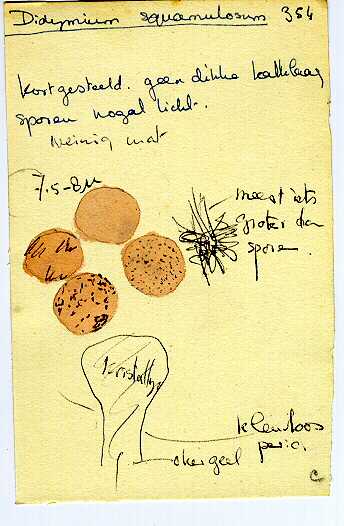 Didymium squamulosum 354
kort gesteeld. geen dikke kalklaag
sporen nogal licht.
weinig wrat
7.5-8 µ
meest iets
groter dan
sporen.
kristallen
kleurloos
peri.
okergeel
c